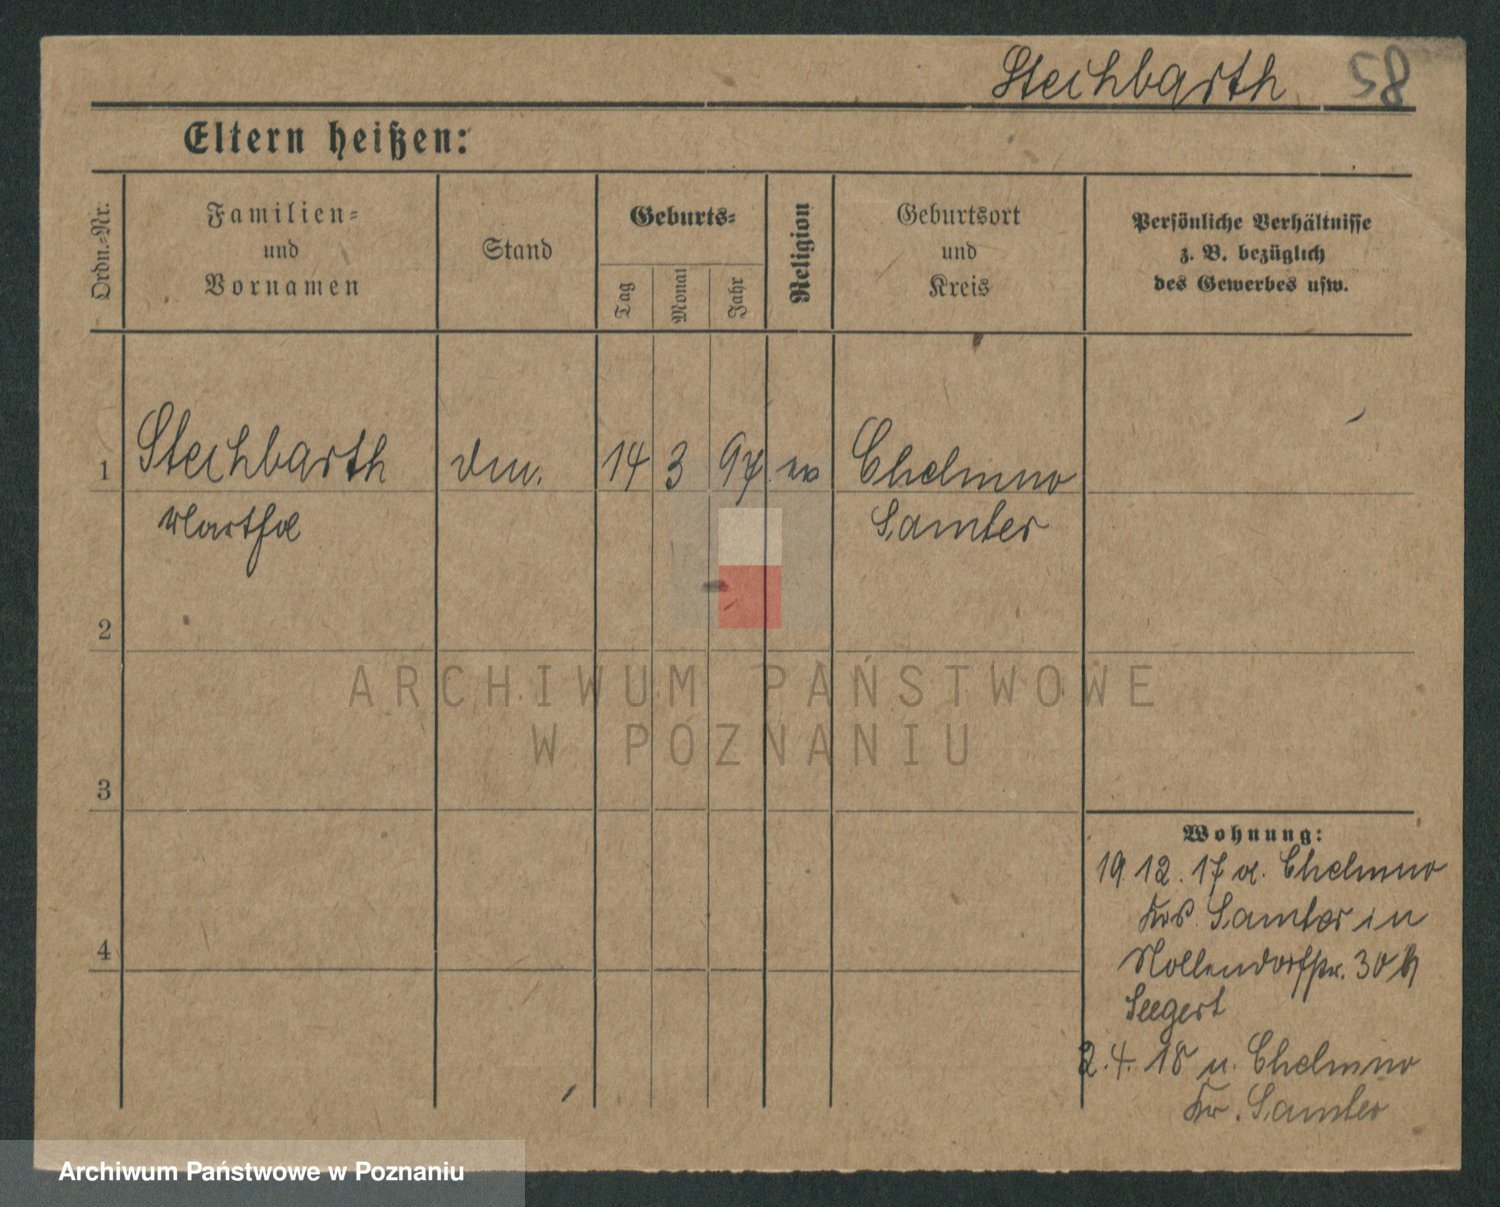 Stechbarth 58
Eltern heißen:
Ordn.-Nr.
Familien-
und
Vornamen
Stand
Geburts-
Tag
Monat
Jahr
Religion
Geburtsort
und
Kreis
Persönliche Verhältnisse
z. B. bezüglich
des Gewerbes usw.
1 Stechbarth 14 3 97 ev Chelmno
Martha Samter
2
3
4
ARCHIWUM PAŃSTWOWE
W POZNANIU
Wohnung:
19.12.17 a. Chelmno
Krs Samter in
Nollendorfstr. 30 b
Seegert
2.4.18 n. Chelmno
Kr. Samter
Archiwum Państwowe w Poznaniu